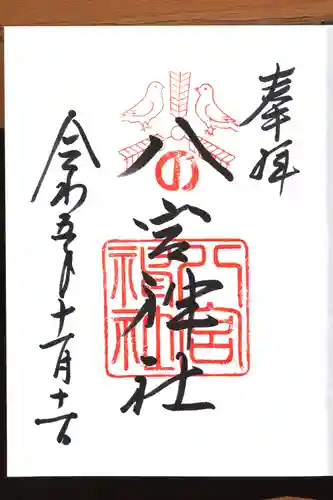 奉拝
八の宮神社
八宮
神社
令和五年十一月十一日